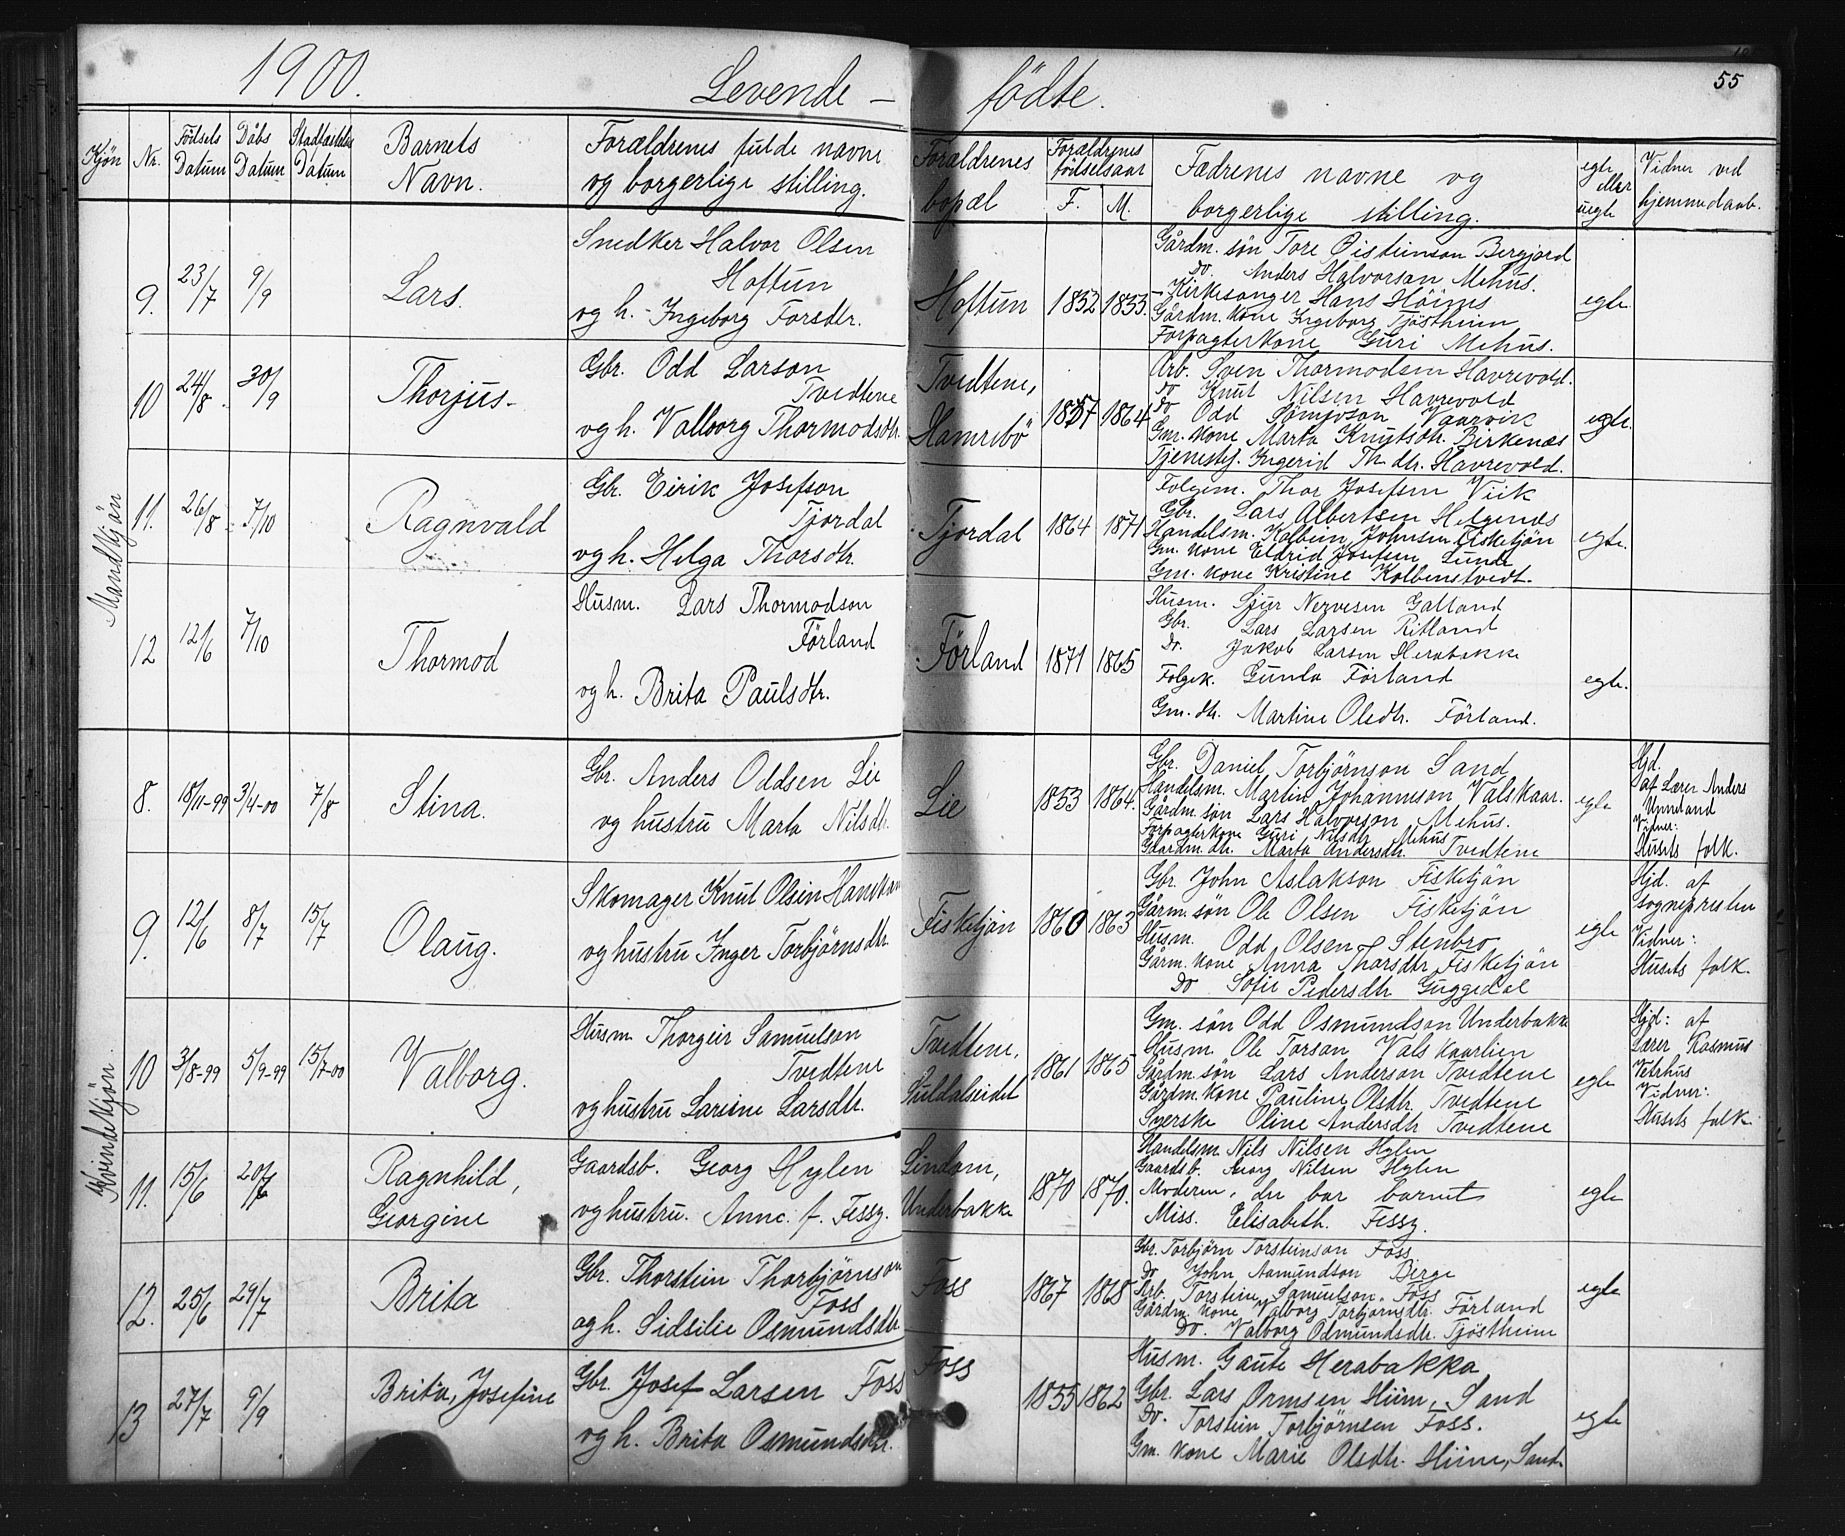 1900.
Levende – fødte.
55
Kjön
Nr.
Födsels Datum
Dåbs Datum
Stadfæstelses Datum
Barnets Navn.
Forældrenes fulde navne og borgerlige stilling.
Forældrenes bopæl
Forældrenes födselsaar
F. M.
Fædrenes navne og borgerlige stilling.
egte eller uegte
Vidner ved hjemmedaab.
Mandkjön
9. 23/7 9/9 Lars.
Snedker Halvor Olsen
Hoftun
og h. Ingeborg Torsdtr.
Hoftun 1852 1855.
Gårdm. sön Tore Öisteinson Bergjord
Do. Anders Halvorson Mehus.
Kirkesanger Hans Höines
Gårdm. kone Ingeborg Tjöstheim
Forpagterkone Guri Mehus.
egte
10 24/8 30/9 Thorjus
Gbr. Odd Larson
Tvedtene
og h. Valborg Thormodsdtr.
Tvedtene,
Hamrebö
1857 1864
Arb. Sven Thormodsen Havrevold.
Do Knut Nilsen Havrevold
Do Odd Vaarvik
Gm. kone Marta Knutsdtr. Birkenæs
Tjenestej. Ingerid Th. dtr. Havrevold.
egte.
11. 26/8 7/10 Ragnvald
Gbr. Eirik Josefson
Tjordal
og h. Helga Thorsdtr.
Tjordal 1864 1871
Folgem. Thor Josefsen Viik
Gbr. Lars Albertsen Helgenes
Handelsm. Kolbein Johnsen Fisketjön
Gm. kone Eldrid Josefsen Lunde
Gm. kone Kristine Kolbenstvedt.
egte.
12 12/6 7/10 Thormod
Husm. Lars Thormodson
Förland
og h. Brita Paulsdtr.
Förland 1871 1865
Husm. Sjur Nervesen Galland
Gbr. Lars Larsen Ritland
Do. Jakob Larsen Herabakke
Folgek. Gunla Förland
Gm. dtr. Martine Olsdtr. Förland.
egte.
Kvindekjön.
8. 18/11-99 3/4-00 7/8 Stina.
Gbr. Anders Oddsen Lie
og hustru Marta Nilsdtr.
Lie 1853 1864.
Gbr. Daniel Torbjörnson Sand
Handelsm. Martin Johannson Valskaar.
Gårdm. sön Lars Halvorson Mehus.
Forpagterkone Guri Nilsdtr. Mehus
Gaardm. dtr. Marta Andersdtr. Tvedtene
egte
Hjd.
af Lærer Anders
Unneland
Vidner:
Husets folk.
9. 12/6 8/7 15/7 Olaug.
Skomager Knut Olsen Hanakam
og hustru Inger Torbjörnsdtr.
Fisketjön 1860 1863
Gbr. John Aslakson Fisketjön
Gårm. sön Ole Olsen Fisketjön
Husm. Odd Olsen Stenbro
Gårm. kone Anna Thorsdtr Fisketjön
Do Sofie Pedersdtr Guggedal
egte
Hjd. af
Sognepresten
Vidner:
Husets folk.
10 3/8-99 5/9-99 15/7-00 Valborg.
Husm. Thorgeir Samuelson
Tvedtene
og hustru Larine Larsdtr.
Tvedtene,
Suldalseidet
1861 1865
Gm. sön Odd Osmundson Underbakke
Husm. Ole Torson Valskaarlien
Gårdm. sön Lars Anderson Tvedtene
Gårdm. kone Pauline Olsdtr. Tvedtene
Syerske Oline Andersdtr Tvedtene
egte
Hjd: af
Lærer Rasmus
Vetrhus
Vidner:
Husets folk
11. 15/6 20/6 Ragnhild,
Georgine
Gaardsb. Georg Hylen
og hustru. Anne. f. Fessy.
Lindom,
Underbakke
1870 1870.
Handelsm Nils Nilsen Hylen
Gaardsb. Georg Nilsen Hylen
Moderen, der bar barnet
Miss. Elisabeth. Fessy.
egte
12. 25/6 29/7 Brita
Gbr. Thorstein Thorbjörnson
Foss
og h. Sidsilie Osmundsdtr.
Foss 1867 1868
Gbr. Torbjörn Torsteinson Foss.
Do John Aamundson Berge
Arb. Torstein Samuelson Foss
Gårdm. kone Valborg Torbjörnsdtr. Förland
Do. Valborg Odmundsdtr. Tjöstheim
egte
13 27/7 9/9 Brita, Josefine
Gbr. Josef Larsen Foss
og h. Brita Osmundsdtr.
Foss
1855 1862
Husm. Gaute Herabakka
Gbr. Lars Ormsen Hiim, Sand
Do. Torstein Torbjörnsen Foss.
Gm. kone Marie Olsdtr. Hiim, Sand.
egte